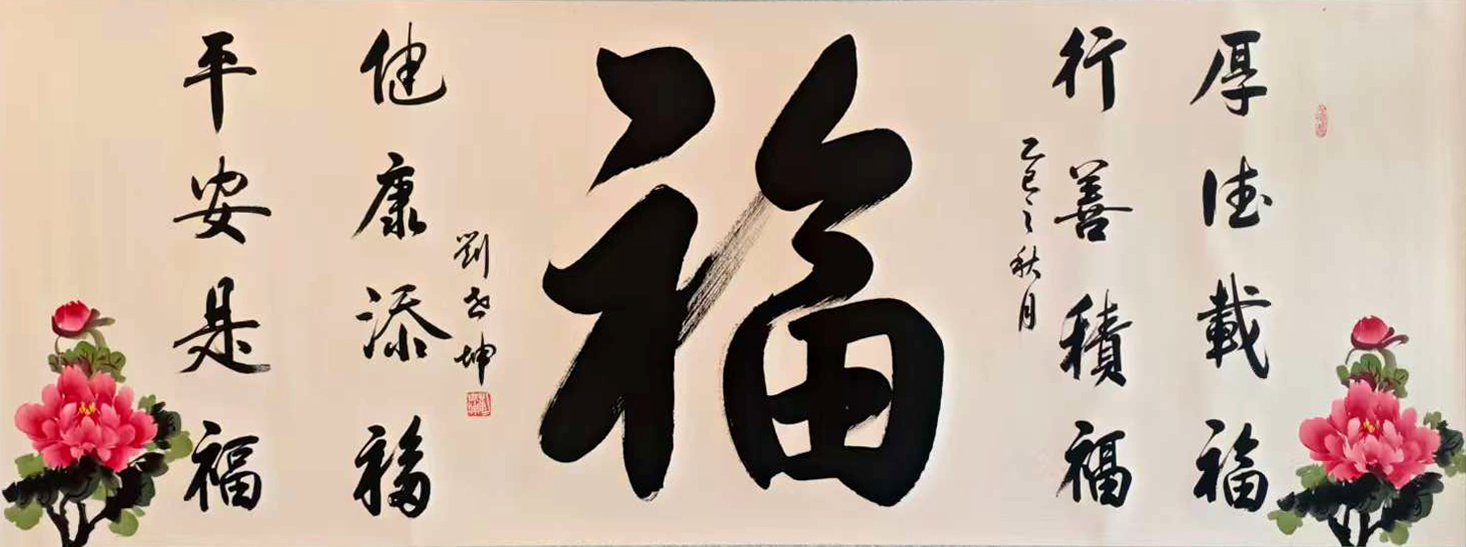 厚德載福
行善積福
乙巳之秋月
福
劉春坤
健康添福
平安是福